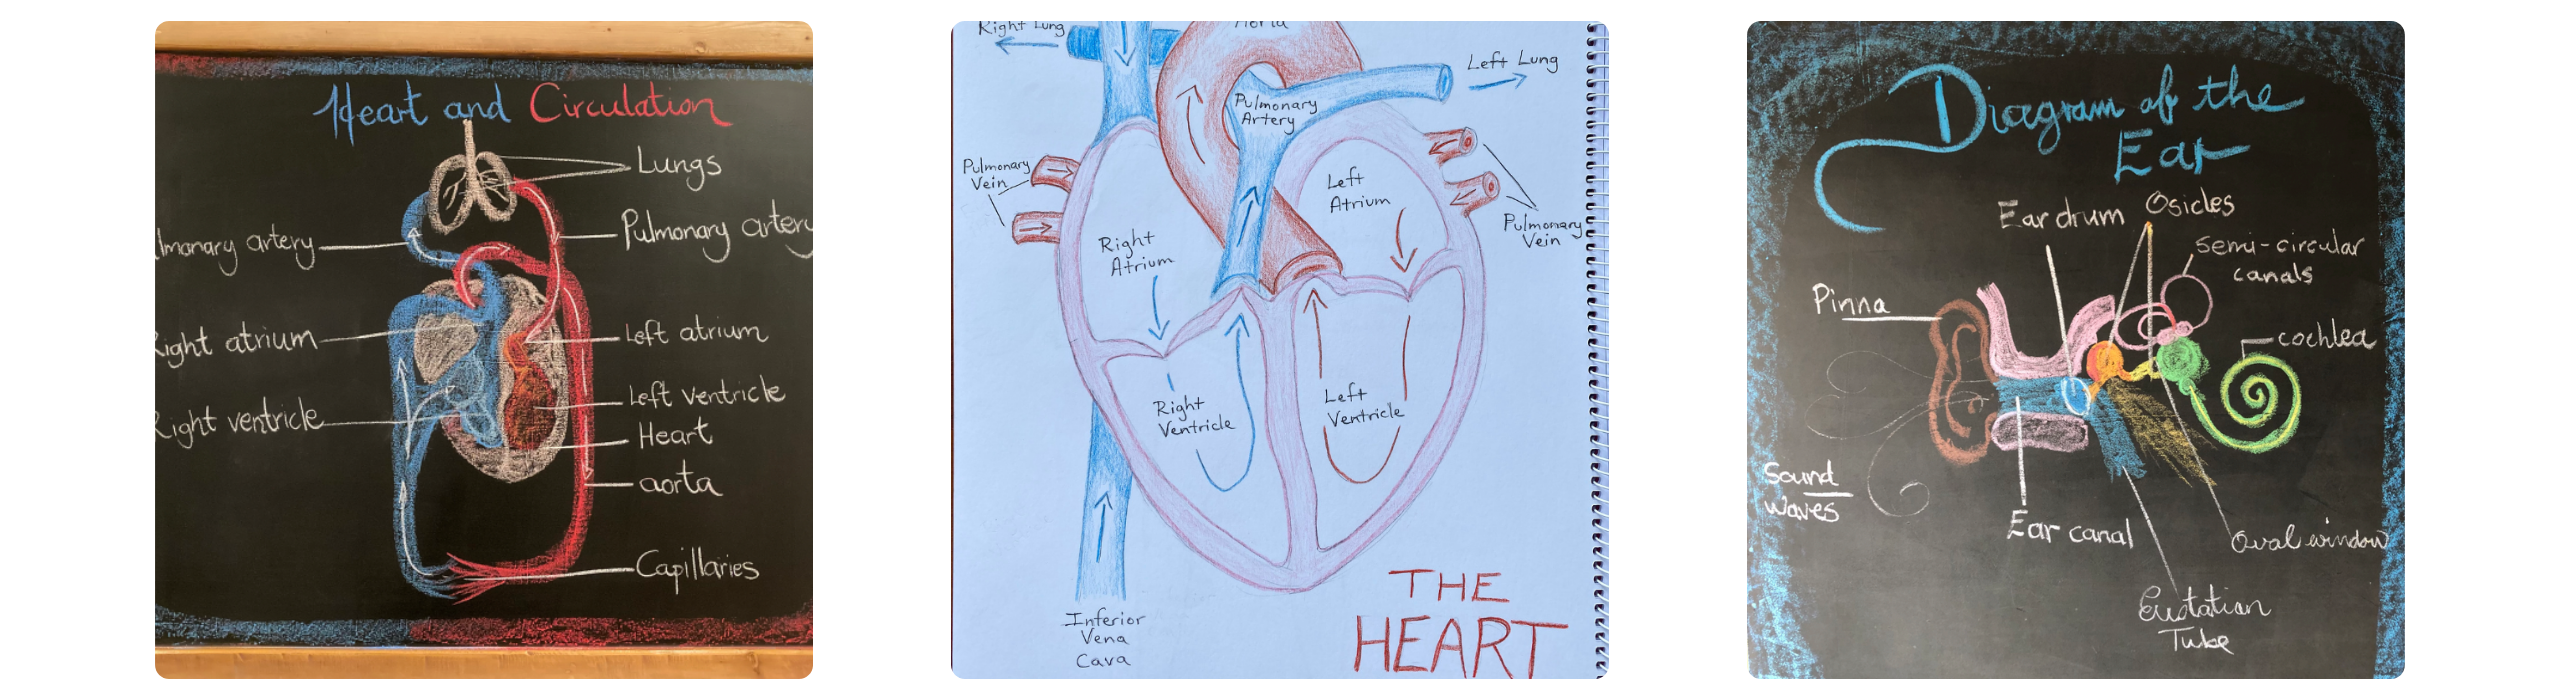 Heart and Circulation
Lungs
Pulmonary artery
lmonary artery
Right atrium
Left atrium
Left ventricle
Right ventricle
Heart
aorta
Capillaries
Right Lung
Aorta
Left Lung
Pulmonary
Artery
Pulmonary
Vein
Left
Atrium
Pulmonary
Vein
Right
Atrium
Right
Ventricle
Left
Ventricle
Inferior
Vena
Cava
THE
HEART
Diagram of the
Ear
Ear drum
Osicles
Semi-circular
canals
Pinna
cochlea
Sound
waves
Ear canal
Oval window
Eustation
Tube